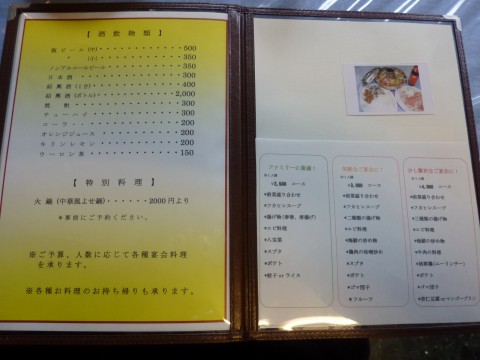 【 酒 飲 物 類 】
瓶 ビール (中)・・・・・・・・・500
〃 (小)・・・・・・・・・350
ノンアルコールビール・・・・・350
日 本 酒・・・・・・・・・300
紹 興 酒 (1合)・・・・・・・400
紹 興 酒 (ボトル)・・・・・2,000
焼 酎・・・・・・・・・300
チューハイ・・・・・・・・300
コーラ・・・・・・・・・200
オレンジジュース・・・・・200
キリンレモン・・・・・・・200
ウーロン茶・・・・・・・・150
【 特 別 料 理 】
火 鍋 (中華風よせ鍋)・・・・・2000円より
*事前にご予約ください。
※ご予算、人数に応じて各種宴会料理
を承ります。
※各種お料理のお持ち帰りも承ります。
ファミリーに最適!
コース
*前菜盛り合わせ
*フカヒレスープ
*エビ料理
*八宝菜
*スブタ
*ポテト
*餃子orライス
コース
*前菜盛り合わせ
*フカヒレスープ
*三種類の揚げ物
*エビ料理
*スブタ
*ポテト
*ゴマ団子
*フルーツ
コース
*前菜盛り合わせ
*フカヒレスープ
*三種類の揚げ物
*エビ料理
*ポテト
*ゴマ団子
*杏仁豆腐orマンゴープリン